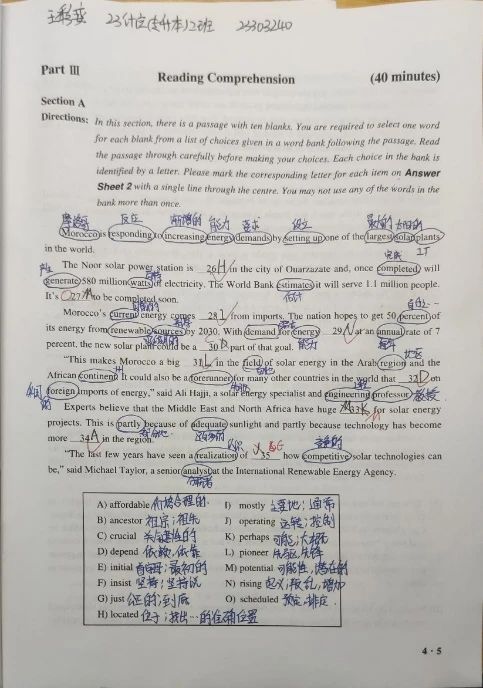 23303240
Part Ⅲ Reading Comprehension (40 minutes)
Section A
Directions: In this section, there is a passage with ten blanks. You are required to select one word
for each blank from a list of choices given in a word bank following the passage. Read
the passage through carefully before making your choices. Each choice in the bank is
identified by a letter. Please mark the corresponding letter for each item on Answer
Sheet 2 with a single line through the centre. You may not use any of the words in the
bank more than once.
摩洛哥 反应 能力 设立
Morocco is responding to increasing energy demands by setting up one of the largest solar plants
in the world. 完成
The Noor solar power station is 26 H in the city of Ouarzazate and, once completed, will
generate 580 million watts of electricity. The World Bank estimates it will serve 1.1 million people.
It's 27 to be completed soon. 估计
Morocco's current energy comes 28 I from imports. The nation hopes to get 50 percent of
its energy from renewable sources by 2030. With demand for energy 29 N at an annual rate of 7
percent, the new solar plant could be a 30 part of that goal. 能力
"This makes Morocco a big 31 L in the field of solar energy in the Arab region and the
African continent. It could also be a forerunner for many other countries in the world that 32 D on
foreign imports of energy," said Ali Hajji, a solar energy specialist and engineering professor. 教授
Experts believe that the Middle East and North Africa have huge 33 for solar energy
projects. This is partly because of adequate sunlight and partly because technology has become
more 34 A in the region.
"The last few years have seen a realization of 35 how competitive solar technologies can
be," said Michael Taylor, a senior analyst at the International Renewable Energy Agency.
分析者
A) affordable 价格合理的 I) mostly 主要地;通常
B) ancestor 祖宗;祖先 J) operating 运转;控制
C) crucial 关键性的 K) perhaps 可能;大概
D) depend 依赖,依靠 L) pioneer 先驱,先锋
E) initial 首字母;最初的 M) potential 可能性,潜在的
F) insist 坚持;坚持说 N) rising 起义,叛乱,增加
G) just 公正的;到底 O) scheduled 预定,排定
H) located 位于;找出…的准确位置
4·5